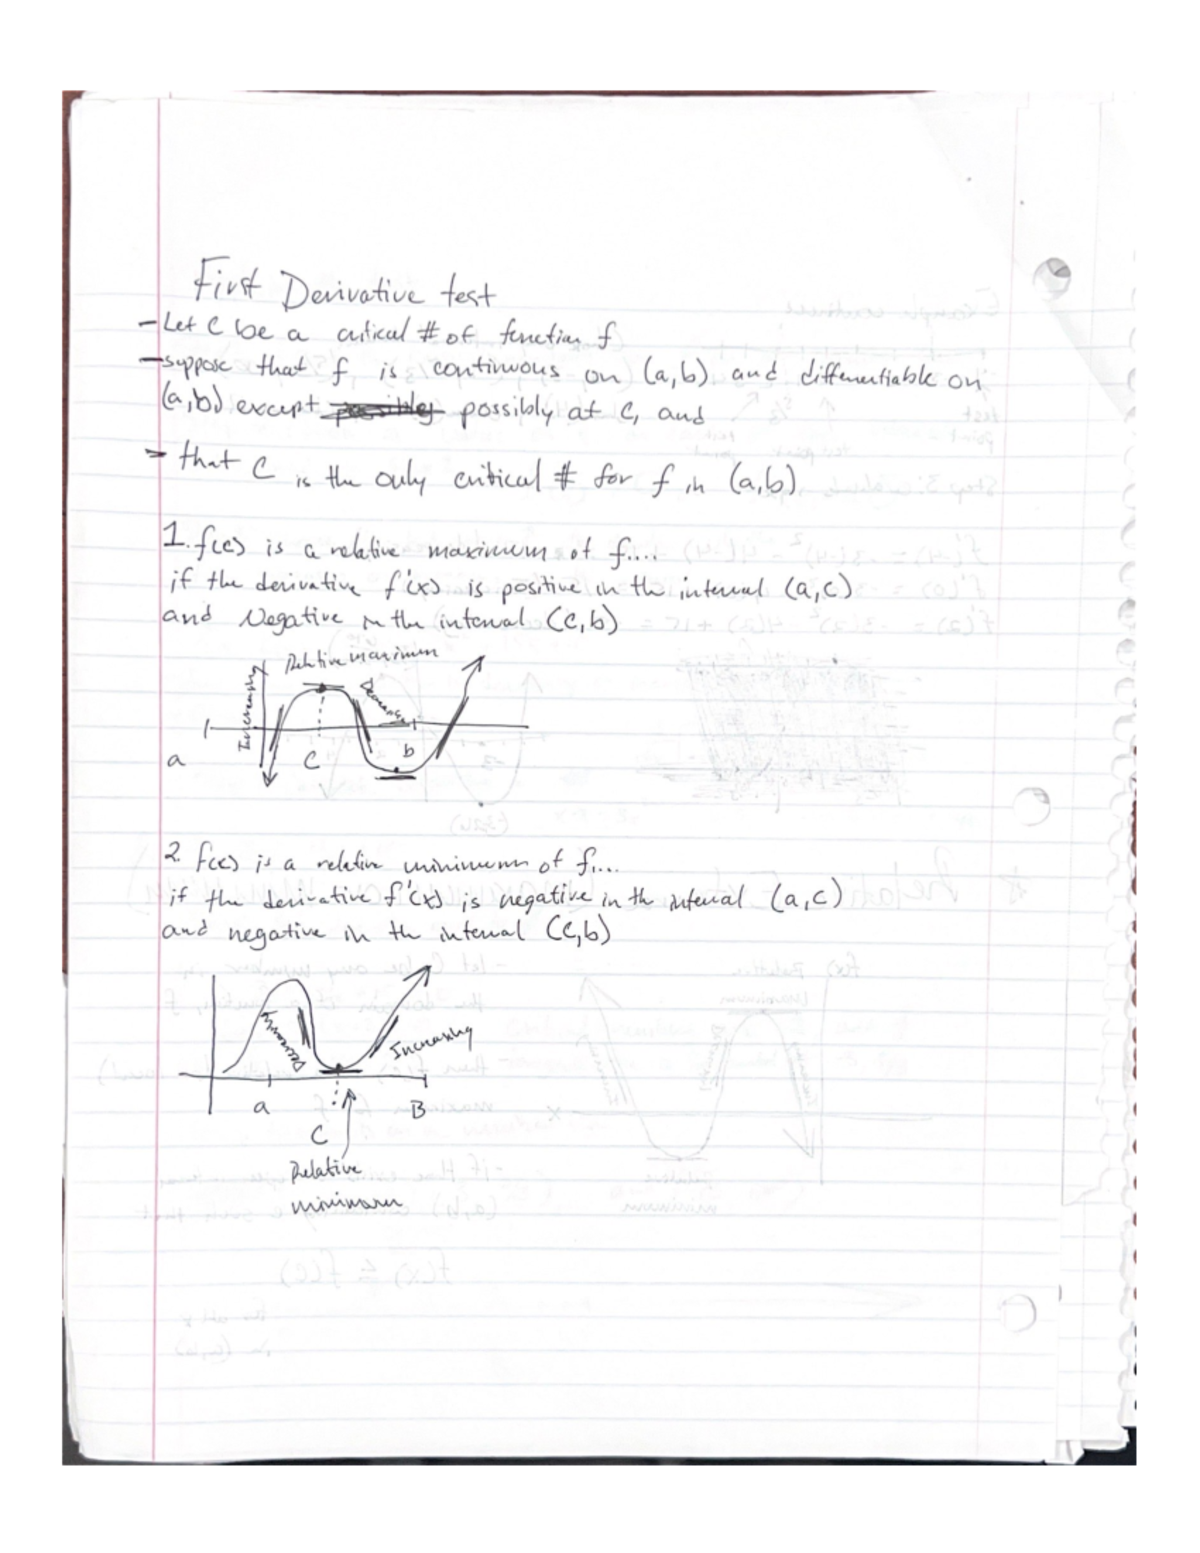 First Derivative test
- Let C be a critical # of function f
- suppose that f is continuous on (a,b) and differentiable on
(a,b) except possibly possibly at C, and
- that C is the only critical # for f in (a,b)
1. f(c) is a relative maximum of f....
if the derivative f'(x) is positive in the interval (a,c)
and Negative in the interval (c,b)
Relative maximum
Increasing
Decreasing
a
C
b
2. f(c) is a relative minimum of f....
if the derivative f'(x) is negative in the interval (a,c)
and negative in the interval (c,b)
Decreasing
Increasing
a
B
C
Relative
minimum